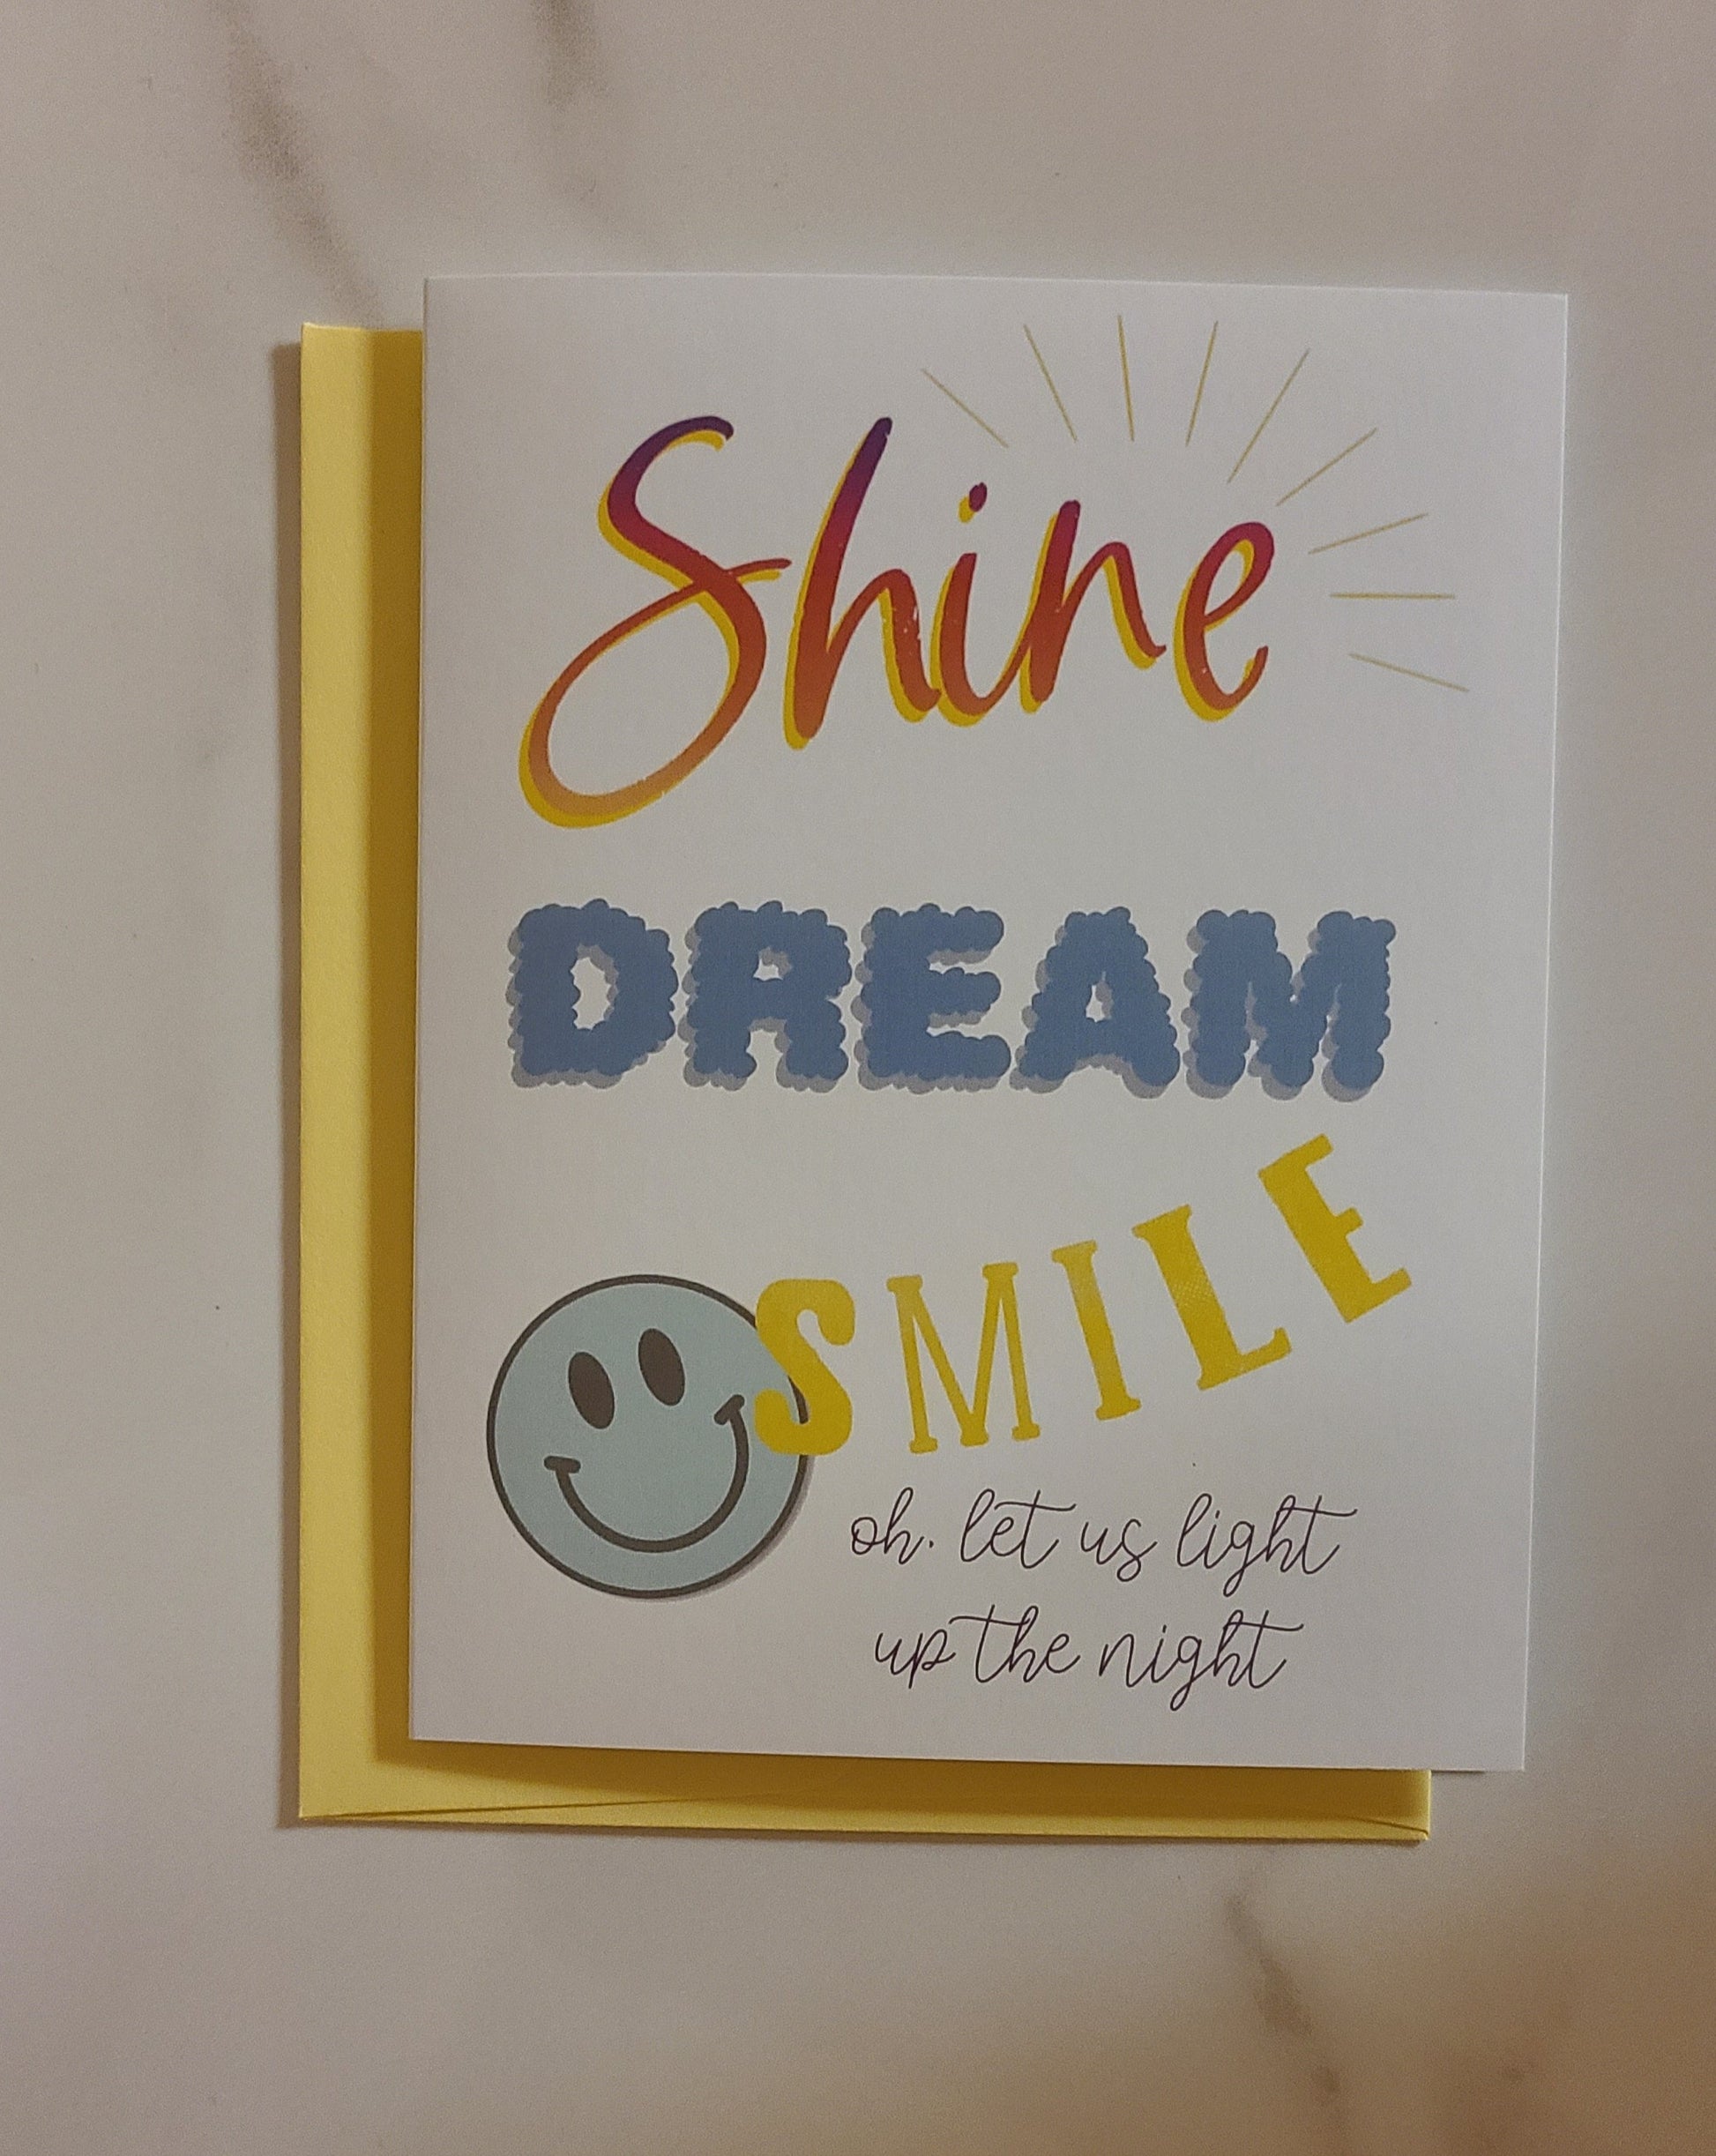 Shine
DREAM
SMILE
oh, let us light
up the night